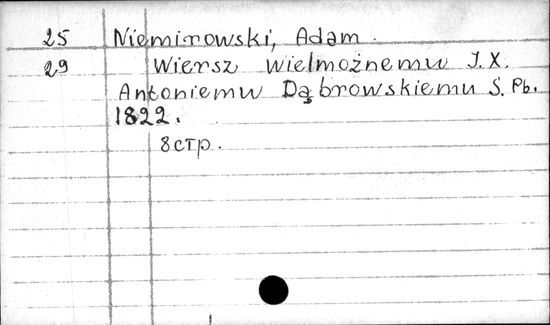 25 Niemirowski, Adam.
29 Wiersz wielmożnemu J. X.
Antoniemu Dąbrowskiemu S. Pb.
1822.
8 стр.